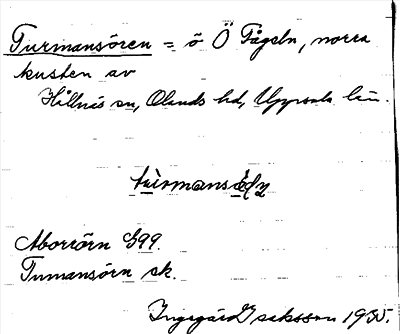 Turmansören = ö Ö Fågeln, norra
kusten av
Hållnäs sn, Olands hd, Uppsala län.
Aborrörn E99.
Tumansörn sk.
Ingegärd Eriksson 1935.